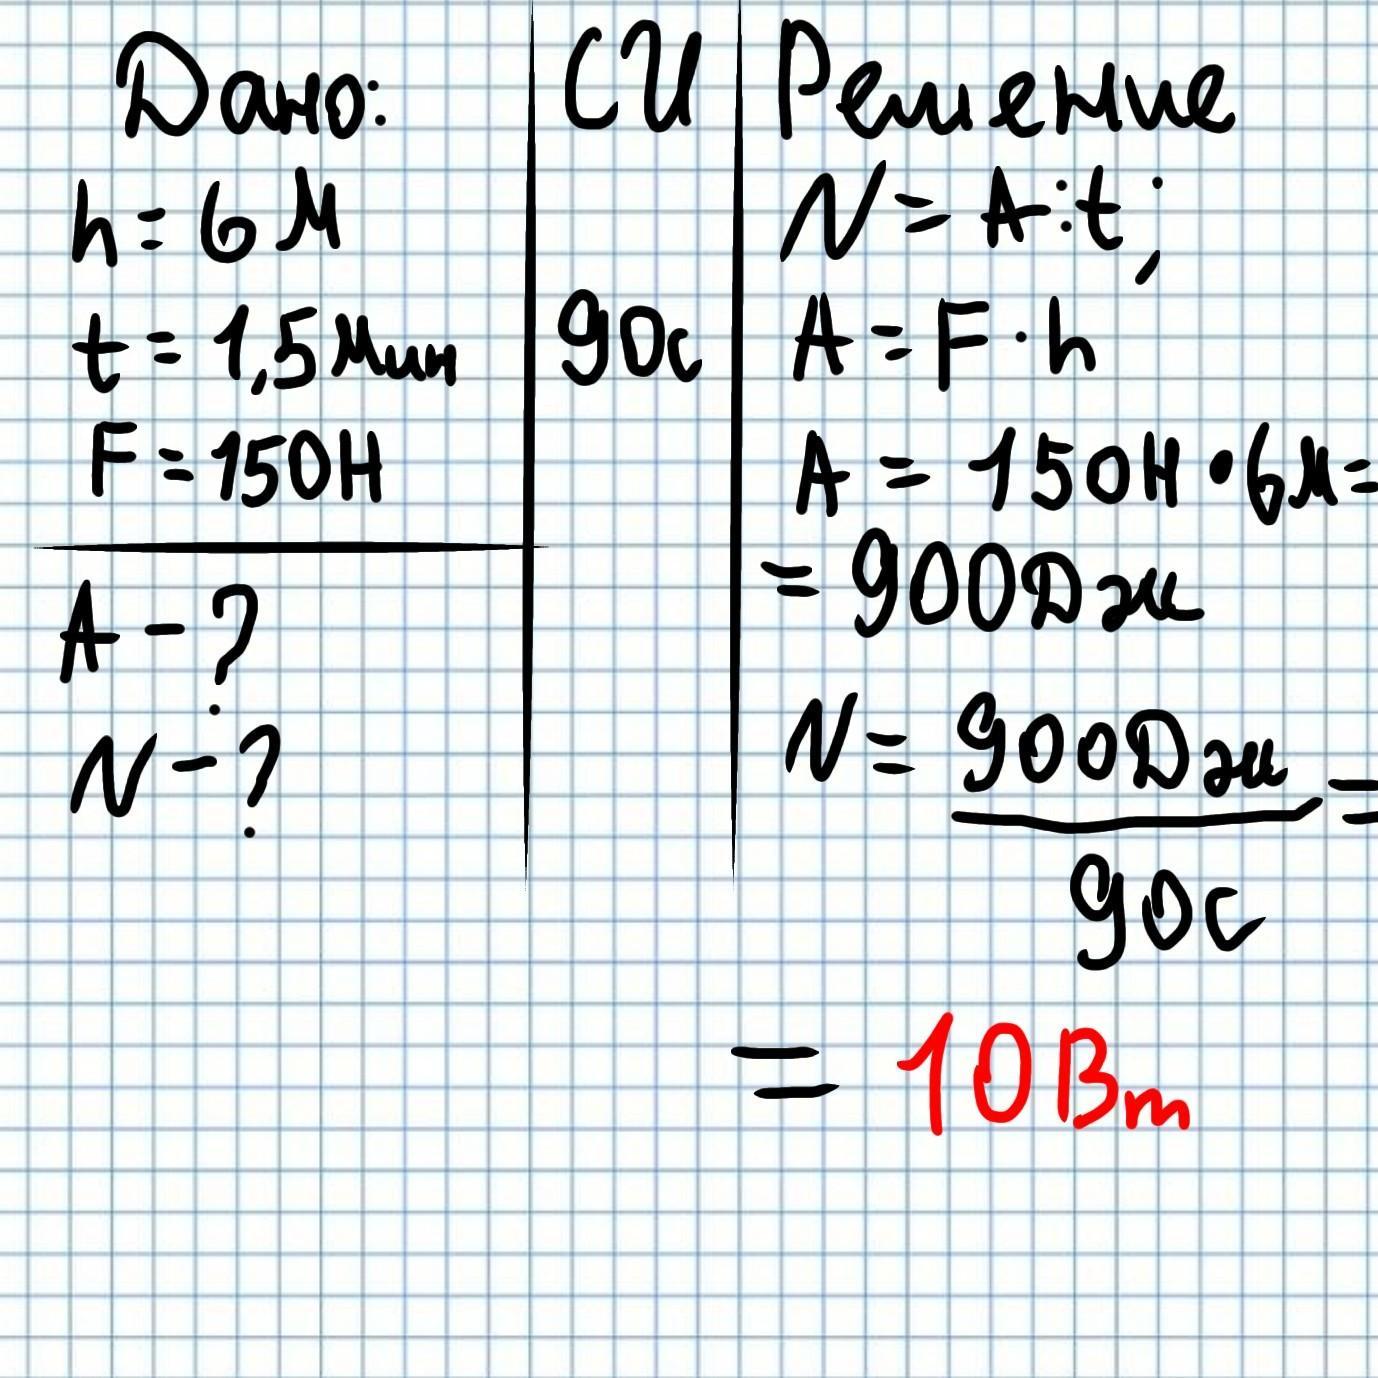 Дано:
h = 6 м
t = 1,5 мин
F = 150Н
A - ?
N - ?
СИ
90с
Решение
N = A : t ;
A = F · h
A = 150Н · 6м =
= 900Дж
N = 900Дж =
90с
= 10Вт